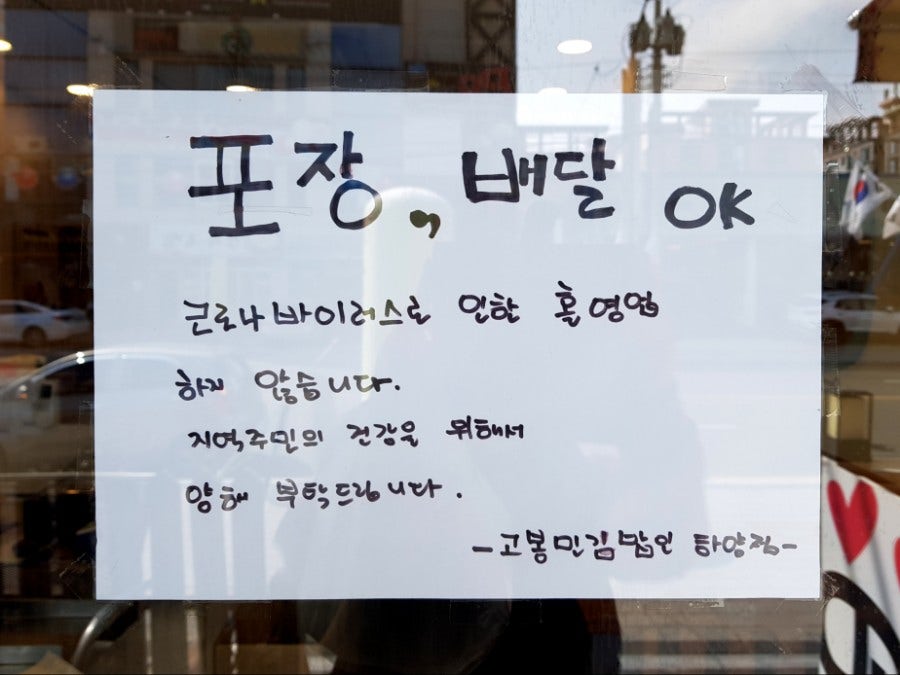 포장, 배달 OK
코로나바이러스로 인한 홀영업
하지 않습니다.
지역주민의 건강을 위해서
양해 부탁드립니다.
-고봉민김밥인 하양점-